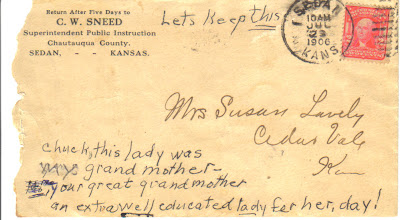 Return After Five Days to
C. W. SNEED
Superintendent Public Instruction
Chautauqua County.
SEDAN, - - KANSAS.
Lets Keep this
SEDAN
10AM
29
1906
KANS
Mrs Susan Lovely
Cedar Vale
Kan
chuck, this lady was
my grand mother-
your great grandmother
an extra well educated lady for her, day!